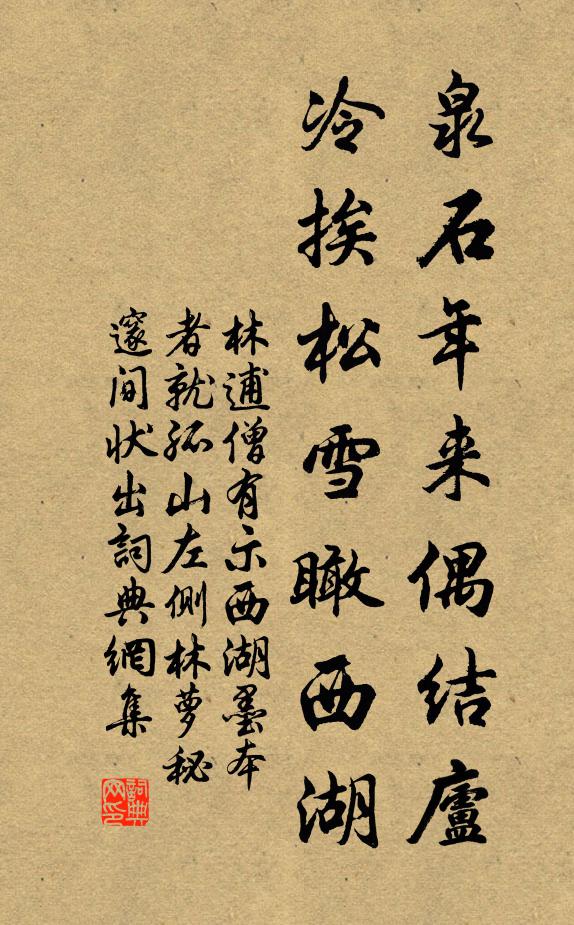 泉石年来偶结廬
冷挨松雪瞰西湖
林逋僧有示西湖墨本
者就孤山左側林萝秘
邃间状出詞典網集
詞典网印